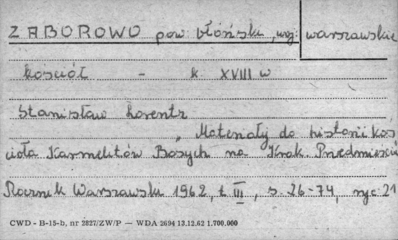 ZABOROWO pow błoński, woj: warszawskie
kościół - k XVIII w
Stanisław Lorentz
"Materiały do historii koś
cioła Karmelitów Bosych na Krak Przedmieściu
Rocznik Warszawski 1962, t III, s. 26-74, ryc 21
CWD - B-15-b, nr 2827/ZW/P — WDA 2694 13.12.62 1.700.000